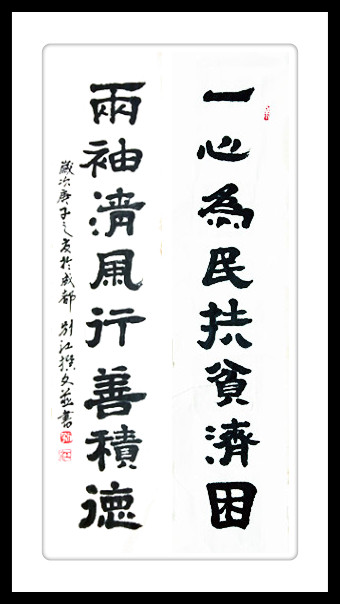 一心為民扶貧濟困
兩袖清風行善積德
歲次庚子之夏於成都 江撰文並書